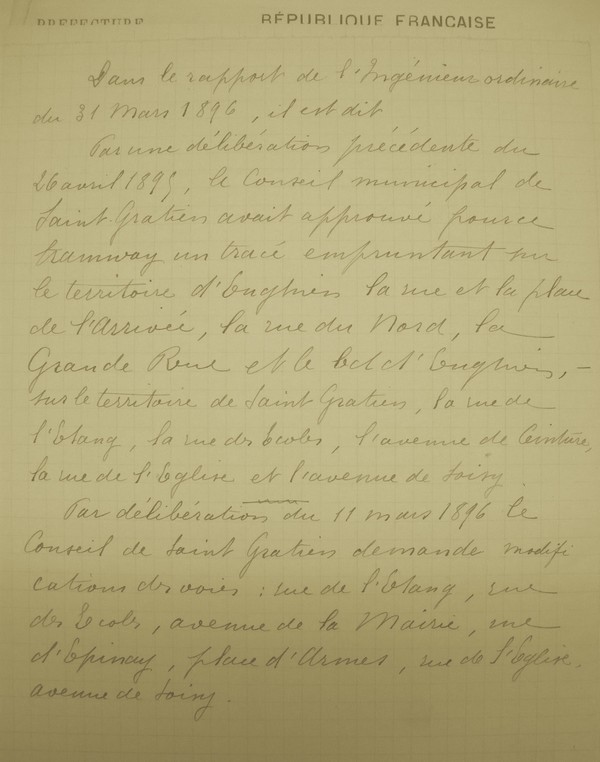 PREFECTURE RÉPUBLIQUE FRANÇAISE
Dans le rapport de l'Ingénieur ordinaire
du 31 Mars 1896, il est dit
Par une délibération précédente du
26 avril 1895, le Conseil municipal de
Saint-Gratien avait approuvé pour ce
tramway un tracé empruntant sur
le territoire d'Enghien la rue et la place
de l'Arrivée, la rue du Nord, la
Grande Rue et le bd d'Enghien, -
sur le territoire de Saint Gratien, la rue de
l'Etang, la rue des Ecoles, l'avenue de Ceinture,
la rue de l'Eglise et l'avenue de Soisy.
Par délibération du 11 mars 1896 le
Conseil de Saint Gratien demande modifi
cations des voies : rue de l'Etang, rue
des Ecoles, avenue de la Mairie, rue
d'Epinay, place d'Armes, rue de l'Eglise,
avenue de Soisy.